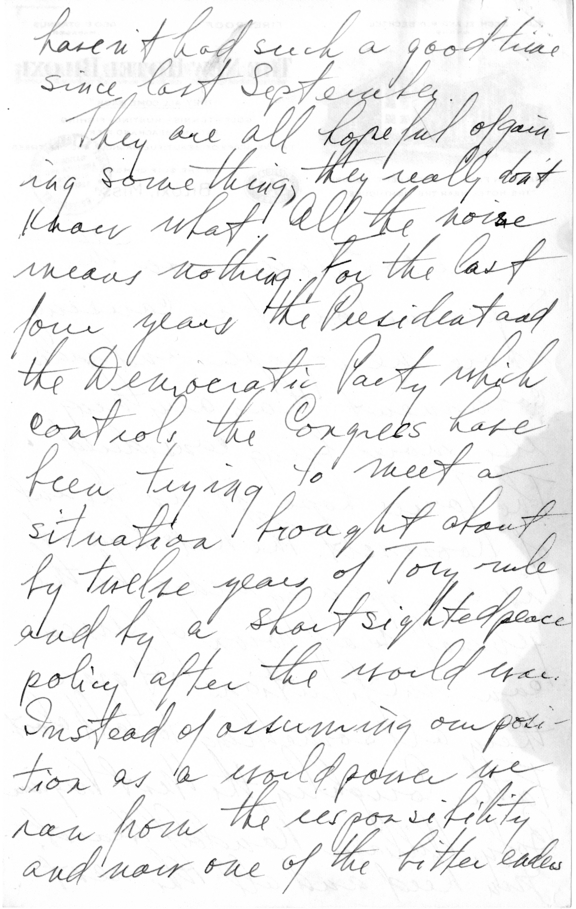 haven't had such a good time
since last September.
They are all hopeful of gain-
ing something, they really don't
know what. All the noise
means nothing. For the last
four years the President and
the Democratic Party which
controls the Congress have
been trying to meet a
situation brought about
by twelve years of Tory rule
and by a short sighted peace
policy after the world war.
Instead of assuming our posi-
tion as a world power we
ran from the responsibility
and now one of the bitter enders